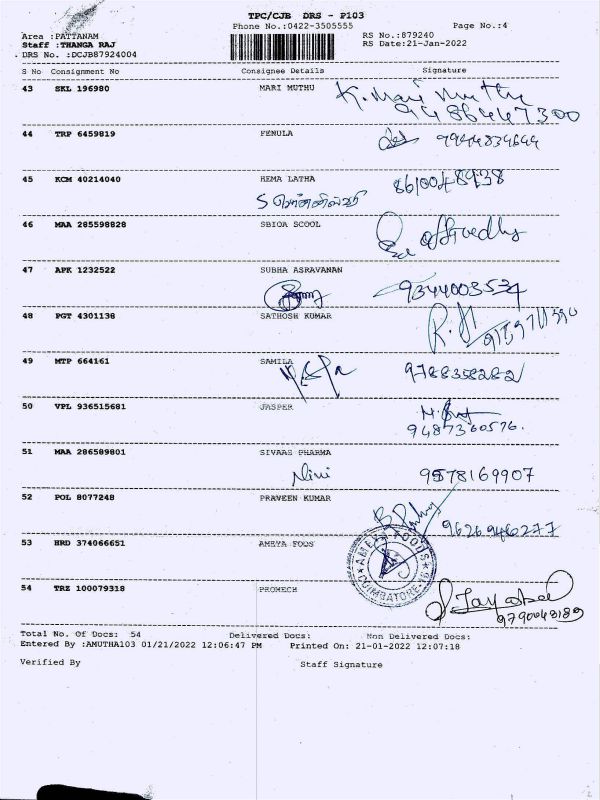 TPC/CJB DRS - P103
Phone No.:0422-3505555 Page No.:4
Area :PATTANAM RS No.:879240
Staff :THANGA RAJ RS Date:21-Jan-2022
DRS No. :DCJB87924004
S No Consignment No Consignee Details Signature
43 SKL 196980 MARI MUTHU K. Mari Muthu
9486447300
44 TRP 6459819 FENULA
45 KCM 40214040 HEMA LATHA
46 MAA 285598828 SBIOA SCOOL
47 APK 1232522 SUBHA ASRAVANAN
9344003534
48 PGT 4301138 SATHOSH KUMAR
49 MTP 664161 SAMILA
9788358282
50 VPL 936515681 JASPER
9487360576.
51 MAA 286589801 SIVAAS PHARMA
Nini 9578169907
52 POL 8077248 PRAVEEN KUMAR
9626946277
53 HRD 374066651 AMEYA FOOS
AMEYA FOODS
COIMBATORE
54 TRZ 100079318 PROMECH
9790048189
Total No. Of Docs: 54 Delivered Docs: Non Delivered Docs:
Entered By :AMUTHA103 01/21/2022 12:06:47 PM Printed On: 21-01-2022 12:07:18
Verified By Staff Signature